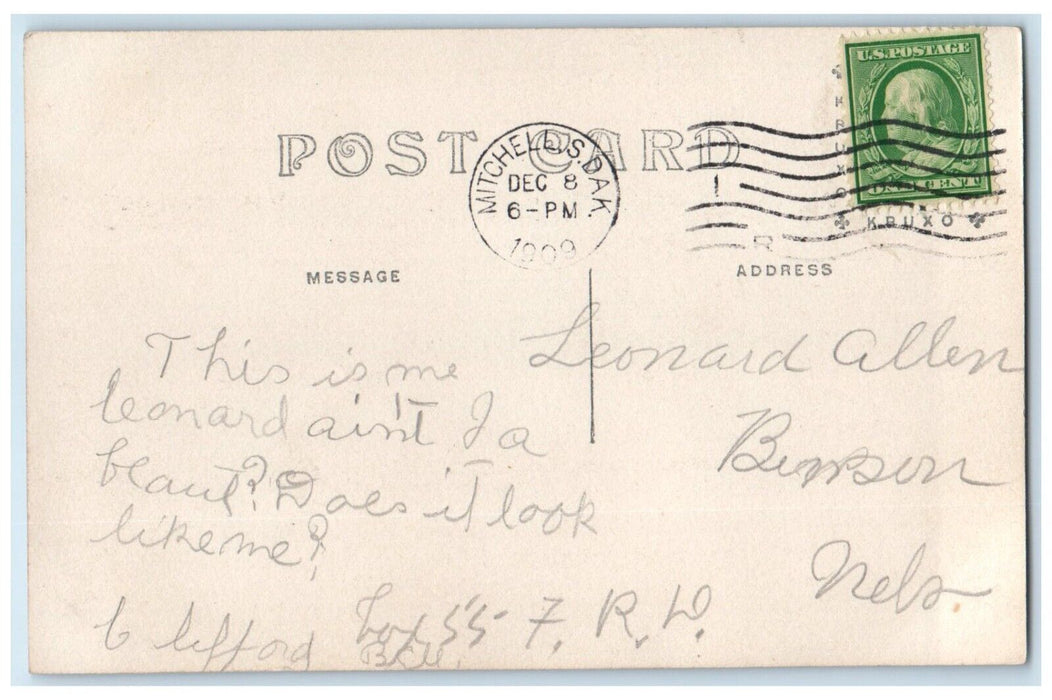 U.S. POSTAGE
POST CARD
MITCHELL, S. DAK.
DEC 8
6-PM
1909
KRUXO
KRUXO
MESSAGE
ADDRESS
This is me
leonard ain't I a
beaut? Does it look
like me?
Clifford
Leonard Allen
Nebr
Box 55 F. R. D.